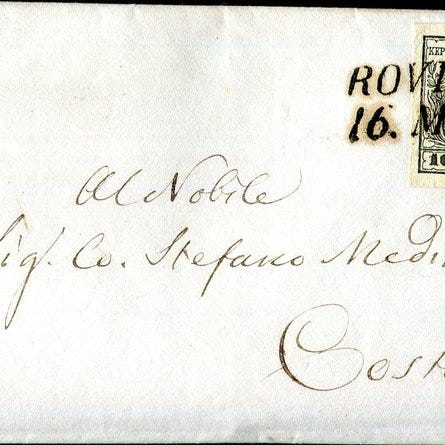 KKP
ROVI
16. M
10
Al Nobile
Sig.r Co. Stefano Medi
Cost